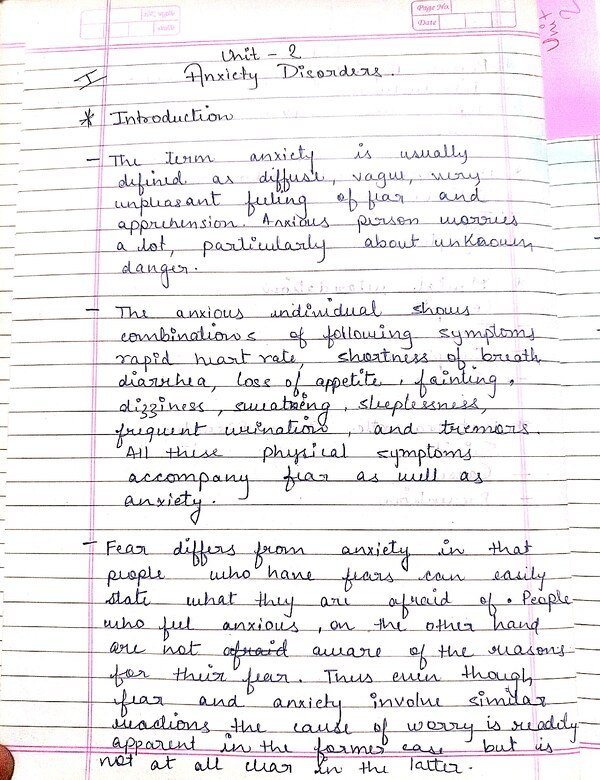 Page No.
Date
Unit 2
Unit - 2
I
Anxiety Disorders.
* Introduction
- The term anxiety is usually
defined as diffuse, vague, very
unpleasant feeling of fear and
apprehension. Anxious person worries
a lot, particularly about unknown
danger.
- The anxious individual shows
combinations of following symptoms
rapid heart rate, shortness of breath,
diarrhea, loss of appetite, fainting,
dizziness, sweating, sleeplessness,
frequent urination, and tremors.
All these physical symptoms
accompany fear as well as
anxiety.
- Fear differs from anxiety in that
people who have fears can easily
state what they are afraid of. People
who feel anxious, on the other hand
are not afraid aware of the reasons
for their fear. Thus even though
fear and anxiety involve similar
reactions the cause of worry is readily
apparent in the former case but is
not at all clear in the latter.